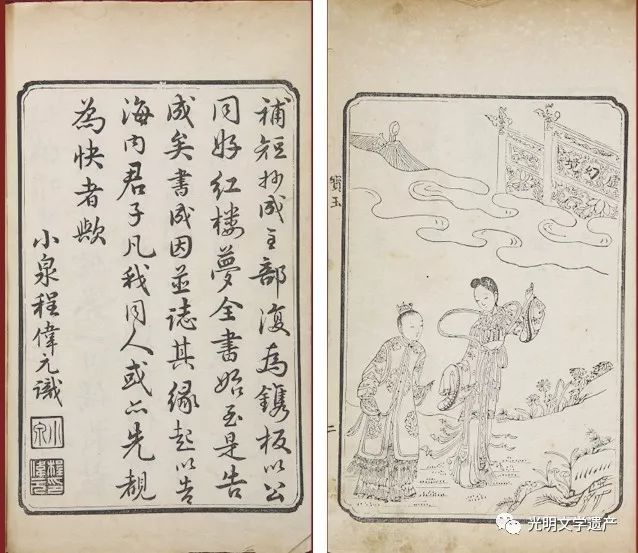 補短抄成全部復為鐫板以公
同好紅樓夢全書始至是告
成矣書成因並誌其緣起以告
海內君子凡我同人或亦先覩
為快者歟
小泉程偉元識
小泉
虛幻境
寶玉
二
光明文学遗产